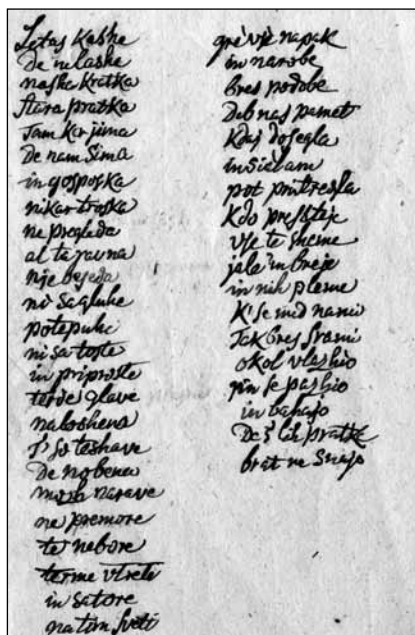 Letas kashe
De nelashe
nasha kratka
stara pratka
Tam kir jima
De nam Sima
in gosposka
nikar troska
ne pregleda
al ta ravna
nje beseda
ni sagluhe
potepuhe
ni sa toste
in priproste
terde glave
naboshena
T' so teshave
De nobena
narave
ne premore
te nebore
terme vtreti
in satore
na tim sveti
gré vje napak
in narobe
bres podobe
Deb nas pamet
Kdaj dosegla
in
pot pritresla
Kdo preshteje
vse te sheme
jale in breje
in nih pleme
K' se med nami
Tak bres srami
okol vlazhio
jin se pazhio
in bahajo
De s' lih pratke
brat ne snajo